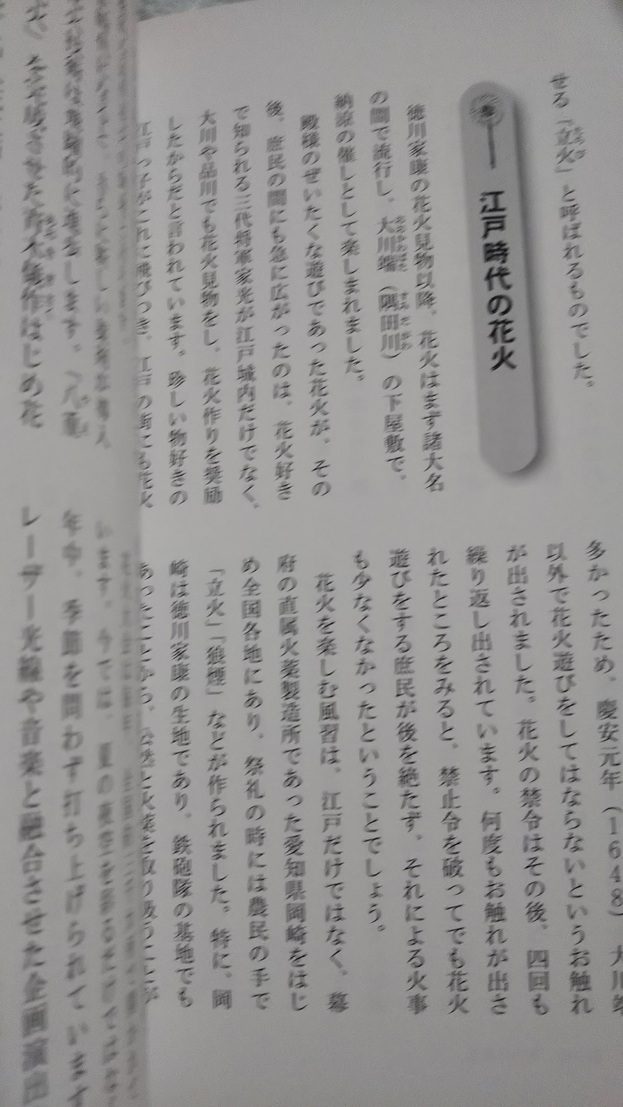 せる「立火」と呼ばれるものでした。
江戸時代の花火
徳川家康の花火見物以降、花火はまず諸大名
の間で流行し、大川端（隅田川）の下屋敷で、
納涼の催しとして楽しまれました。
殿様のぜいたくな遊びであった花火が、その
後、庶民の間にも急に広がったのは、花火好き
で知られる三代将軍家光が江戸城内だけでなく、
大川や品川でも花火見物をし、花火作りを奨励
したからだと言われています。珍しい物好きの
江戸っ子がこれに飛びつき、江戸の街にも花火
多かったため、慶安元年（1648）大川端
以外で花火遊びをしてはならないというお触れ
が出されました。花火の禁令はその後、四回も
繰り返し出されています。何度もお触れが出さ
れたところをみると、禁止令を破ってでも花火
遊びをする庶民が後を絶たず、それによる火事
も少なくなかったということでしょう。
花火を楽しむ風習は、江戸だけではなく、幕
府の直属火薬製造所であった愛知県岡崎をはじ
め全国各地にあり、祭礼の時には農民の手で
「立火」「狼煙」などが作られました。特に、岡
崎は徳川家康の生地であり、鉄砲隊の基地でも
あったことから、公然と火薬を取り扱うことが
はじめ花
います。今では、夏の
年中、季節を問わず打ち上げられています
レーザー光線や音楽と融合させた企画演出